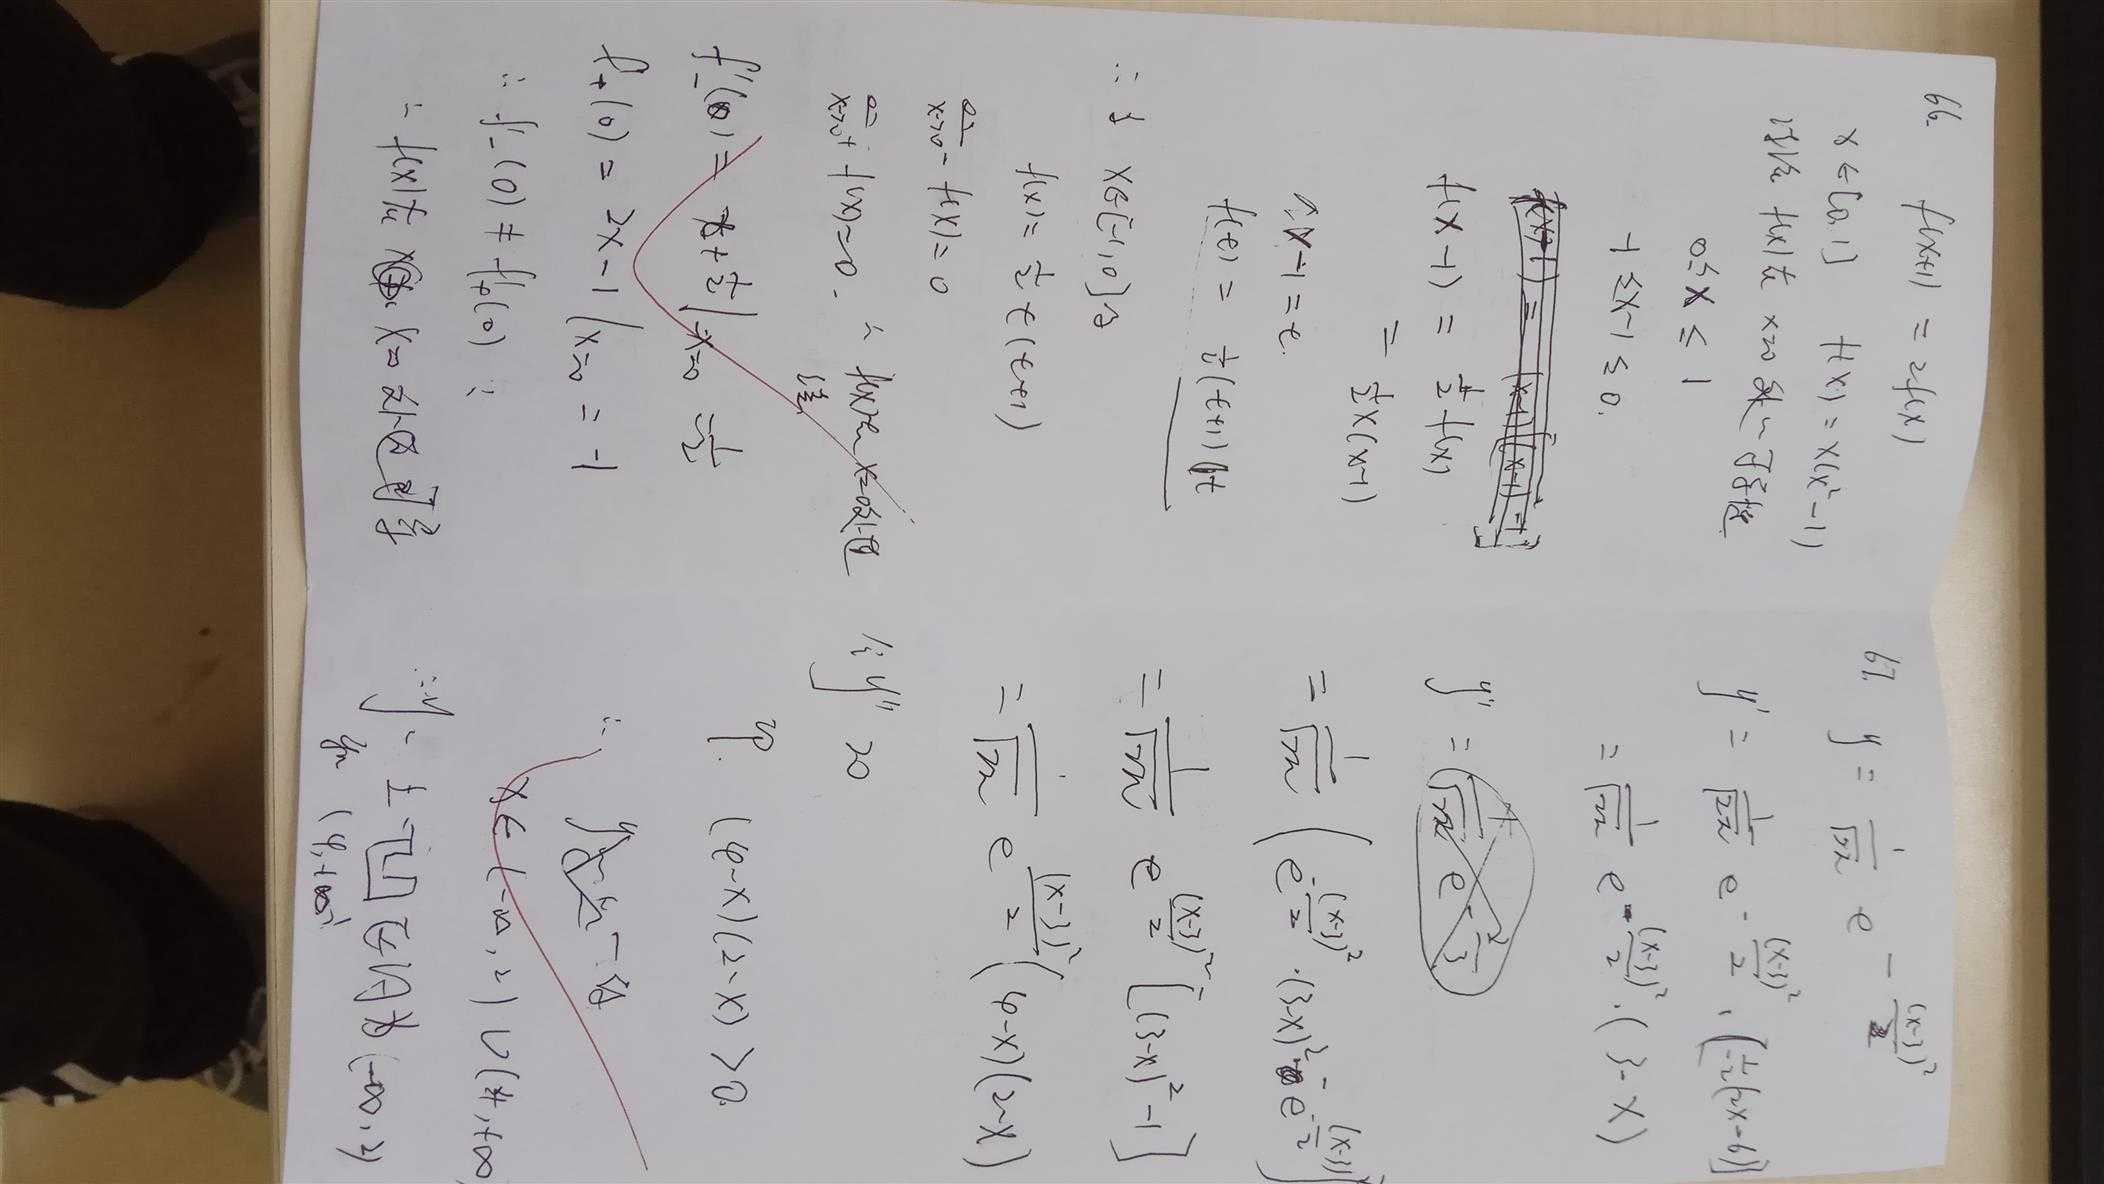 66. f(x+1) = 2f(x)
x∈[0,1] f(x) = x(x²-1)
讨论 f(x)在 x=0 处的可导性
0≤x≤1
-1≤x-1≤0.
f(x-1) = 1/2 f(x)
= 1/2 x(x-1)
x-1=t.
f(t) = 1/2 (t+1)t
∴ 当 x∈[-1,0]时
f(x) = 1/2 t(t+1)
x→0⁻ f(x)=0
x→0⁺ f(x)=0. ∴ f(x)在 x=0处连续
f'₋(0) = t+1/2 |x=0 = 1/2
f₊(0) = 2x-1 |x=0 = -1
∴ f₋(0) ≠ f₊(0) ∴
∴ f(x)在 x=0处不可导
67. y = 1/√2π e^-(x-3)²/2
y' = 1/√2π e^-(x-3)²/2 · (-1/2(2x-6))
= 1/√2π e^-(x-3)²/2 · (3-x)
y'' =
= 1/√2π (e^-(x-3)²/2 · (3-x)² - e^-(x-3)²/2)
= 1/√2π e^-(x-3)²/2 [(3-x)²-1]
= 1/√2π e^(x-3)²/2 (4-x)(2-x)
令y''>0
即 (4-x)(2-x)>0.
∴
x∈(-∞,2)∪(4,+∞)
∴y 的 上凹区间为(-∞,2)
和 (4,+∞)